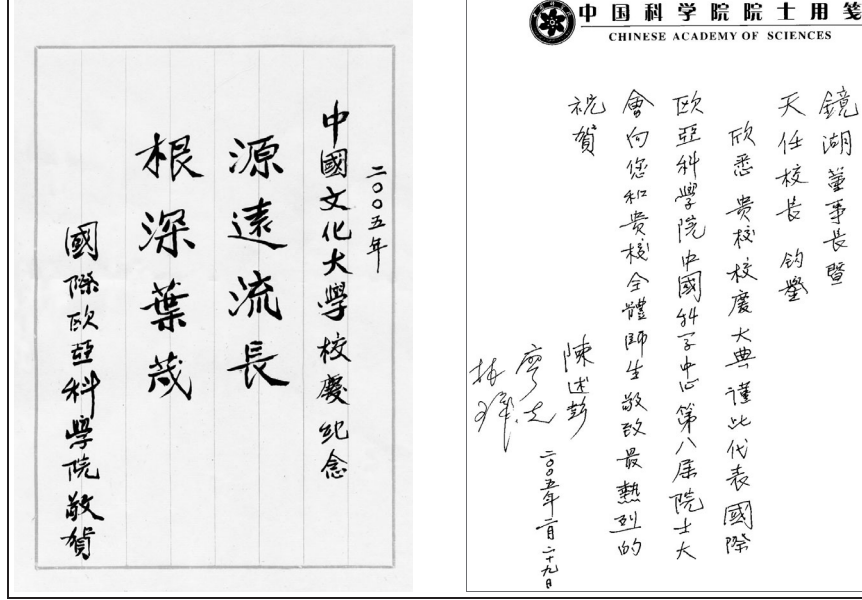 二〇〇五年
中國文化大學校慶紀念
源遠流長
根深葉茂
國際欧亞科學院敬賀
中国科学院院士用笺
CHINESE ACADEMY OF SCIENCES
鏡湖董事長暨
天任校長 鈞鑒
欣悉貴校校慶大典謹此代表國際
欧亞科學院中國科学中心第八届院士大
會向您和贵校全體師生敬致最熱烈的
祝賀
陳述彭
廖克
二〇〇五年二月二十九日